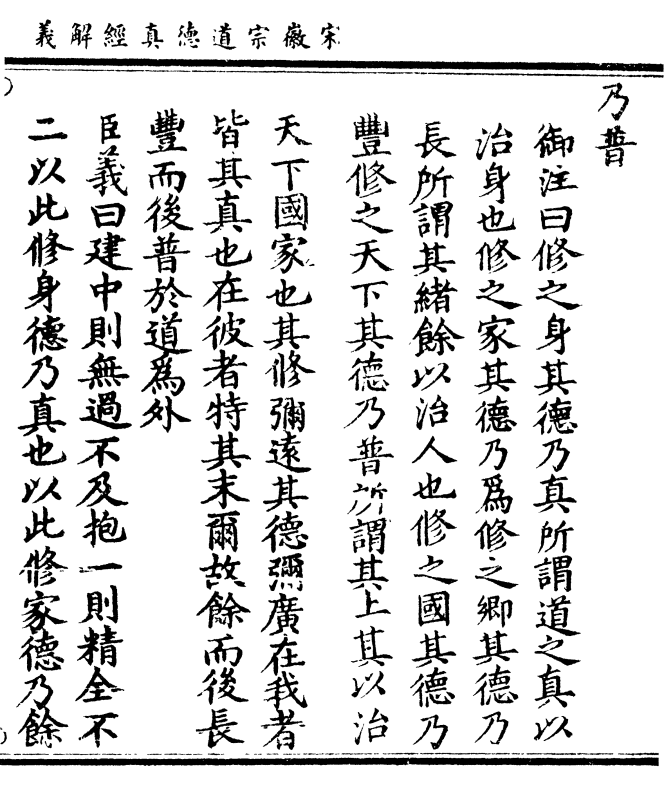 宋徽宗道德真經解義
乃普
御注曰修之身其德乃真所謂道之真以
治身也修之家其德乃爲修之鄉其德乃
長所謂其緒餘以治人也修之國其德乃
豐修之天下其德乃普所謂其上其以治
天下國家也其修彌遠其德彌廣在我者
皆其真也在彼者特其末爾故餘而後長
豐而後普於道爲外
臣義曰建中則無過不及抱一則精全不
二以此修身德乃真也以此修家德乃餘